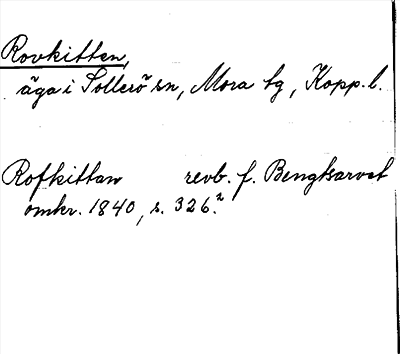 Rovkitten,
äga i Sollerö sn, Mora tg, Kopp. l.
Rofkittan revb. f. Bengtsarvet
omkr. 1840, s. 326.²